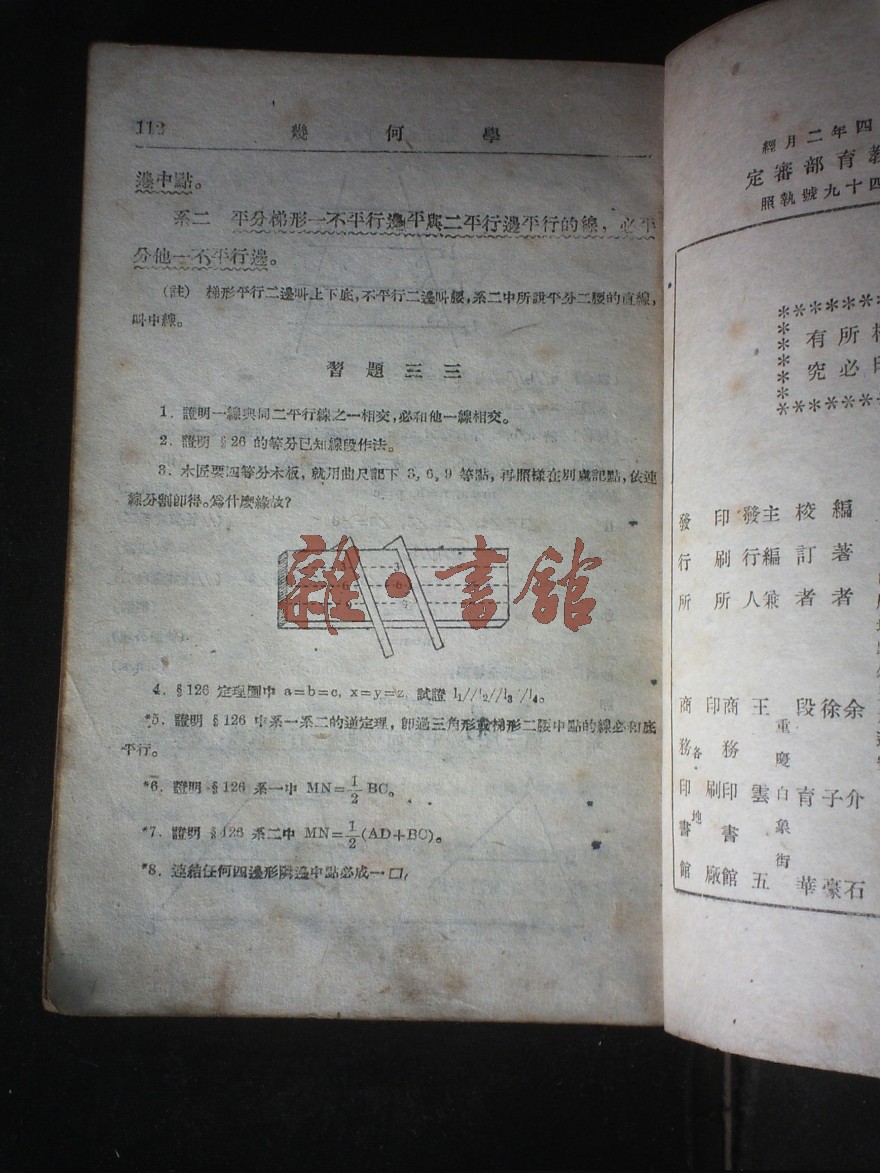 112 幾何學
邊中點。
系二 平分梯形一不平行邊平與二平行邊平行的線，必平
分他一不平行邊。
(註) 梯形平行二邊叫上下底，不平行二邊叫腰，系二中所說平分二腰的直線，
叫中線。
習題三三
1. 證明一線與同二平行線之一相交，必和他一線相交。
2. 證明 §26 的等分已知線段作法。
3. 木匠要四等分木板，就用曲尺記下 3, 6, 9 等點，再照樣在別處記點，依連
線分割即得。為什麼緣故?
3 3
6 6
9 9
雜·書館
4. §126 定理圖中 a=b=c, x=y=z, 試證 l₁//l₂//l₃//l₄。
*5. 證明 §126 中系一系二的逆定理，即過三角形或梯形二腰中點的線必和底
平行。
*6. 證明 §126 系一中 MN=1/2 BC。
*7. 證明 §126 系二中 MN=1/2(AD+BC)。
*8. 連結任何四邊形隣邊中點必成一□。
四年二月經
教育部審定
四十九號執照
所有
必究
編著者 余介石 徐子豪 段育華
校訂者
主編兼發行人 王雲五
重慶白象街
印刷所 商務印書館印刷廠
發行所 商務印書館
各地